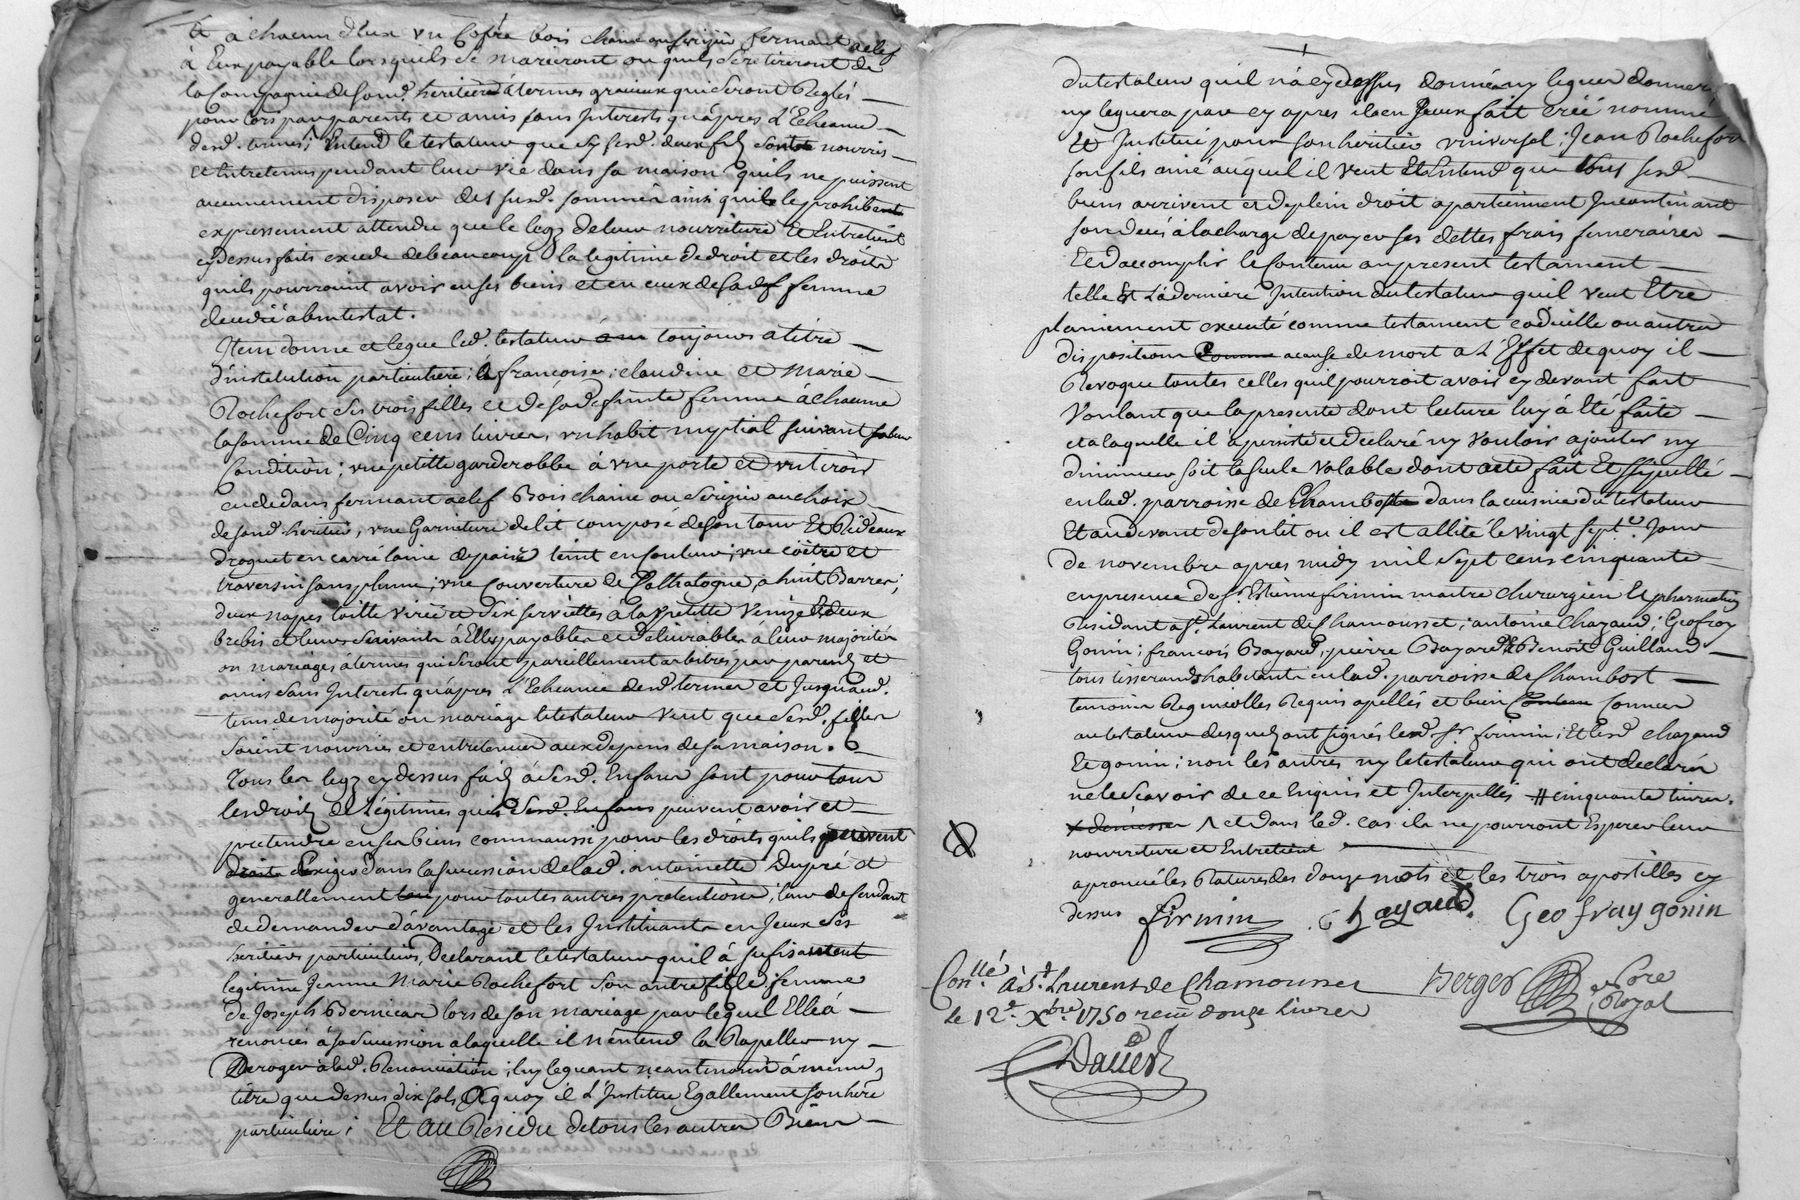 Et à chacun d'Eux vn Cofre bois chaine ou serizier fermant a clef
à Eux payable lorsquils se marieront ou quils se retireront de
la Compagnie de sond. heritier à termes gracieux qui seront Reglés
pour lors par parents et amis sans Interests qu'apres L'Echeance
desd. termes ; Entend le testateur que sesd. deux fils soient nourris
et Entretenus pendant leur vie dans sa maison quils ne puissent
aucunement disposer des susd. sommes ainsi quil le prohibe
expressement attendu que le legz de leur nourriture et Entretient
cy dessus faits excede de beaucoup la legitime de droit et les droits
quils pourroient avoir en ses biens et en ceux de sad. femme
decedée abintestat.
Item donne et legue led. testateur toujours a titre
d'institution particuliere ; à francoise ; claudine et Marie
Rochefort ses trois filles et de sad. defunte femme à chacune
la somme de Cinq cens livres, vn habit nuptial suivant sa
Condition ; vne petitte garderobbe à vne porte et vn tiroir
en dedans fermant a clef Bois chaine ou serizier au choix
de sond. heritier, vne Garniture de lit composé de son tour Et Rideaux
droguet en carré laine de païs teint en couleur ; vne coëtre et
traversin sans plume ; vne Couverture de Catalogne, a huit Barres ;
deux napes toille virée et six serviettes à la petitte Venize Et deux
brebis et leurs suivants à Elles payables et delivrables à leur majorités
ou mariages à termes qui seront pareillement arbitrés par parents et
amis sans Interests qu'apres L'Echeance desd. termes et Jusqu'aud.
tems de majorité ou mariage le testateur veut que sesd. filles
soient nourries et entretenues aux depens de sa maison.
Tous les legz cy dessus faits à sesd. Enfans sont pour tous
les droits de Légitimes que sesd. Enfans peuvent avoir et
pretendre en ses biens comm'aussy pour les droits quils peuvent
droits Exiger dans la succession de lad. antoinette Dupré et
generallement pour toutes autres pretentions ; leur defendant
de demander d'avantage et les Instituant en Jceux ses
heritiers particuliers, Declarant le testateur quil à sufisament
legitimé Jeanne Marie Rochefort son autre fille ; femme
de Joseph Berniear lors de son mariage par lequel Elle à
renoncés à sa succession a laquelle il n'entend la Rapeller ny
Deroger à lad. Renonciation ; luy leguant neantmoins à meme
titre que dessus dix sols, A quoy il L'Institue Egallement son here
particuliere ; Et au Residu de tous les autres Biens
du testateur quil n'a cy dessus donné ny legué donnera
ny leguera par cy apres il en Jceux fait créé nommé
Et Institué pour son heritier vniversel ; Jean Rochefort
son fils ainé auquel il veut Et Entend que tous sesd.
biens arrivent et de plein droit apartiennent Incontinant
son decés à la charge de payer ses dettes frais funeraires
Et d'accomplir le Contenu au present testament
telle Est La derniere Intention du testateur quil veut Etre
plainement executé comme testament codicille ou autre
disposition Comme a cause de mort a L'Effet de quoy il
Revoque toutes celles quil pourroit avoir cy devant fait
Voulant que la presente dont lecture luy à Eté faite
et a laquelle il à persisté et declaré ny vouloir ajouter ny
diminuer soit la seule Valable dont acte fait Et Expedié
en lad. parroisse de Chambost dans la cuisine du testateur
Et au devant de son lit ou il est allité le vingt sept.e Jour
de novembre apres midy mil sept cens cinquante
en presence de s.r Estienne firmin maitre chirurgien Et pharmatien
Residant a S.t Laurent de Chamousset ; antoine Chazaud ; Geofroy
Gonin ; francois Bayard ; pierre Bayard Et Benoit Guilland
tous tisserands habitants en lad. parroisse de Chambost
temoins Regnicolles Requis apellés et bien connus
au testateur desquels ont signés led. sr. firmin ; Et lesd. chazaud
Et gonin ; non les autres ny le testateur qui ont declarés
ne le scavoir de ce Enquis et Interpellés # cinquante livres.
Λ et dans led. cas ils ne pourront Esperer leur
nourriture et Entretient
aprouvé les Ratures des douze mots et les trois apostilles cy
dessus firmin Chazaud. Geofray gonin
Con.llé à S.t Laurent de Chamousset Berger Nore Royal
le 12.e Xbre 1750 receu douze livres
Dauest